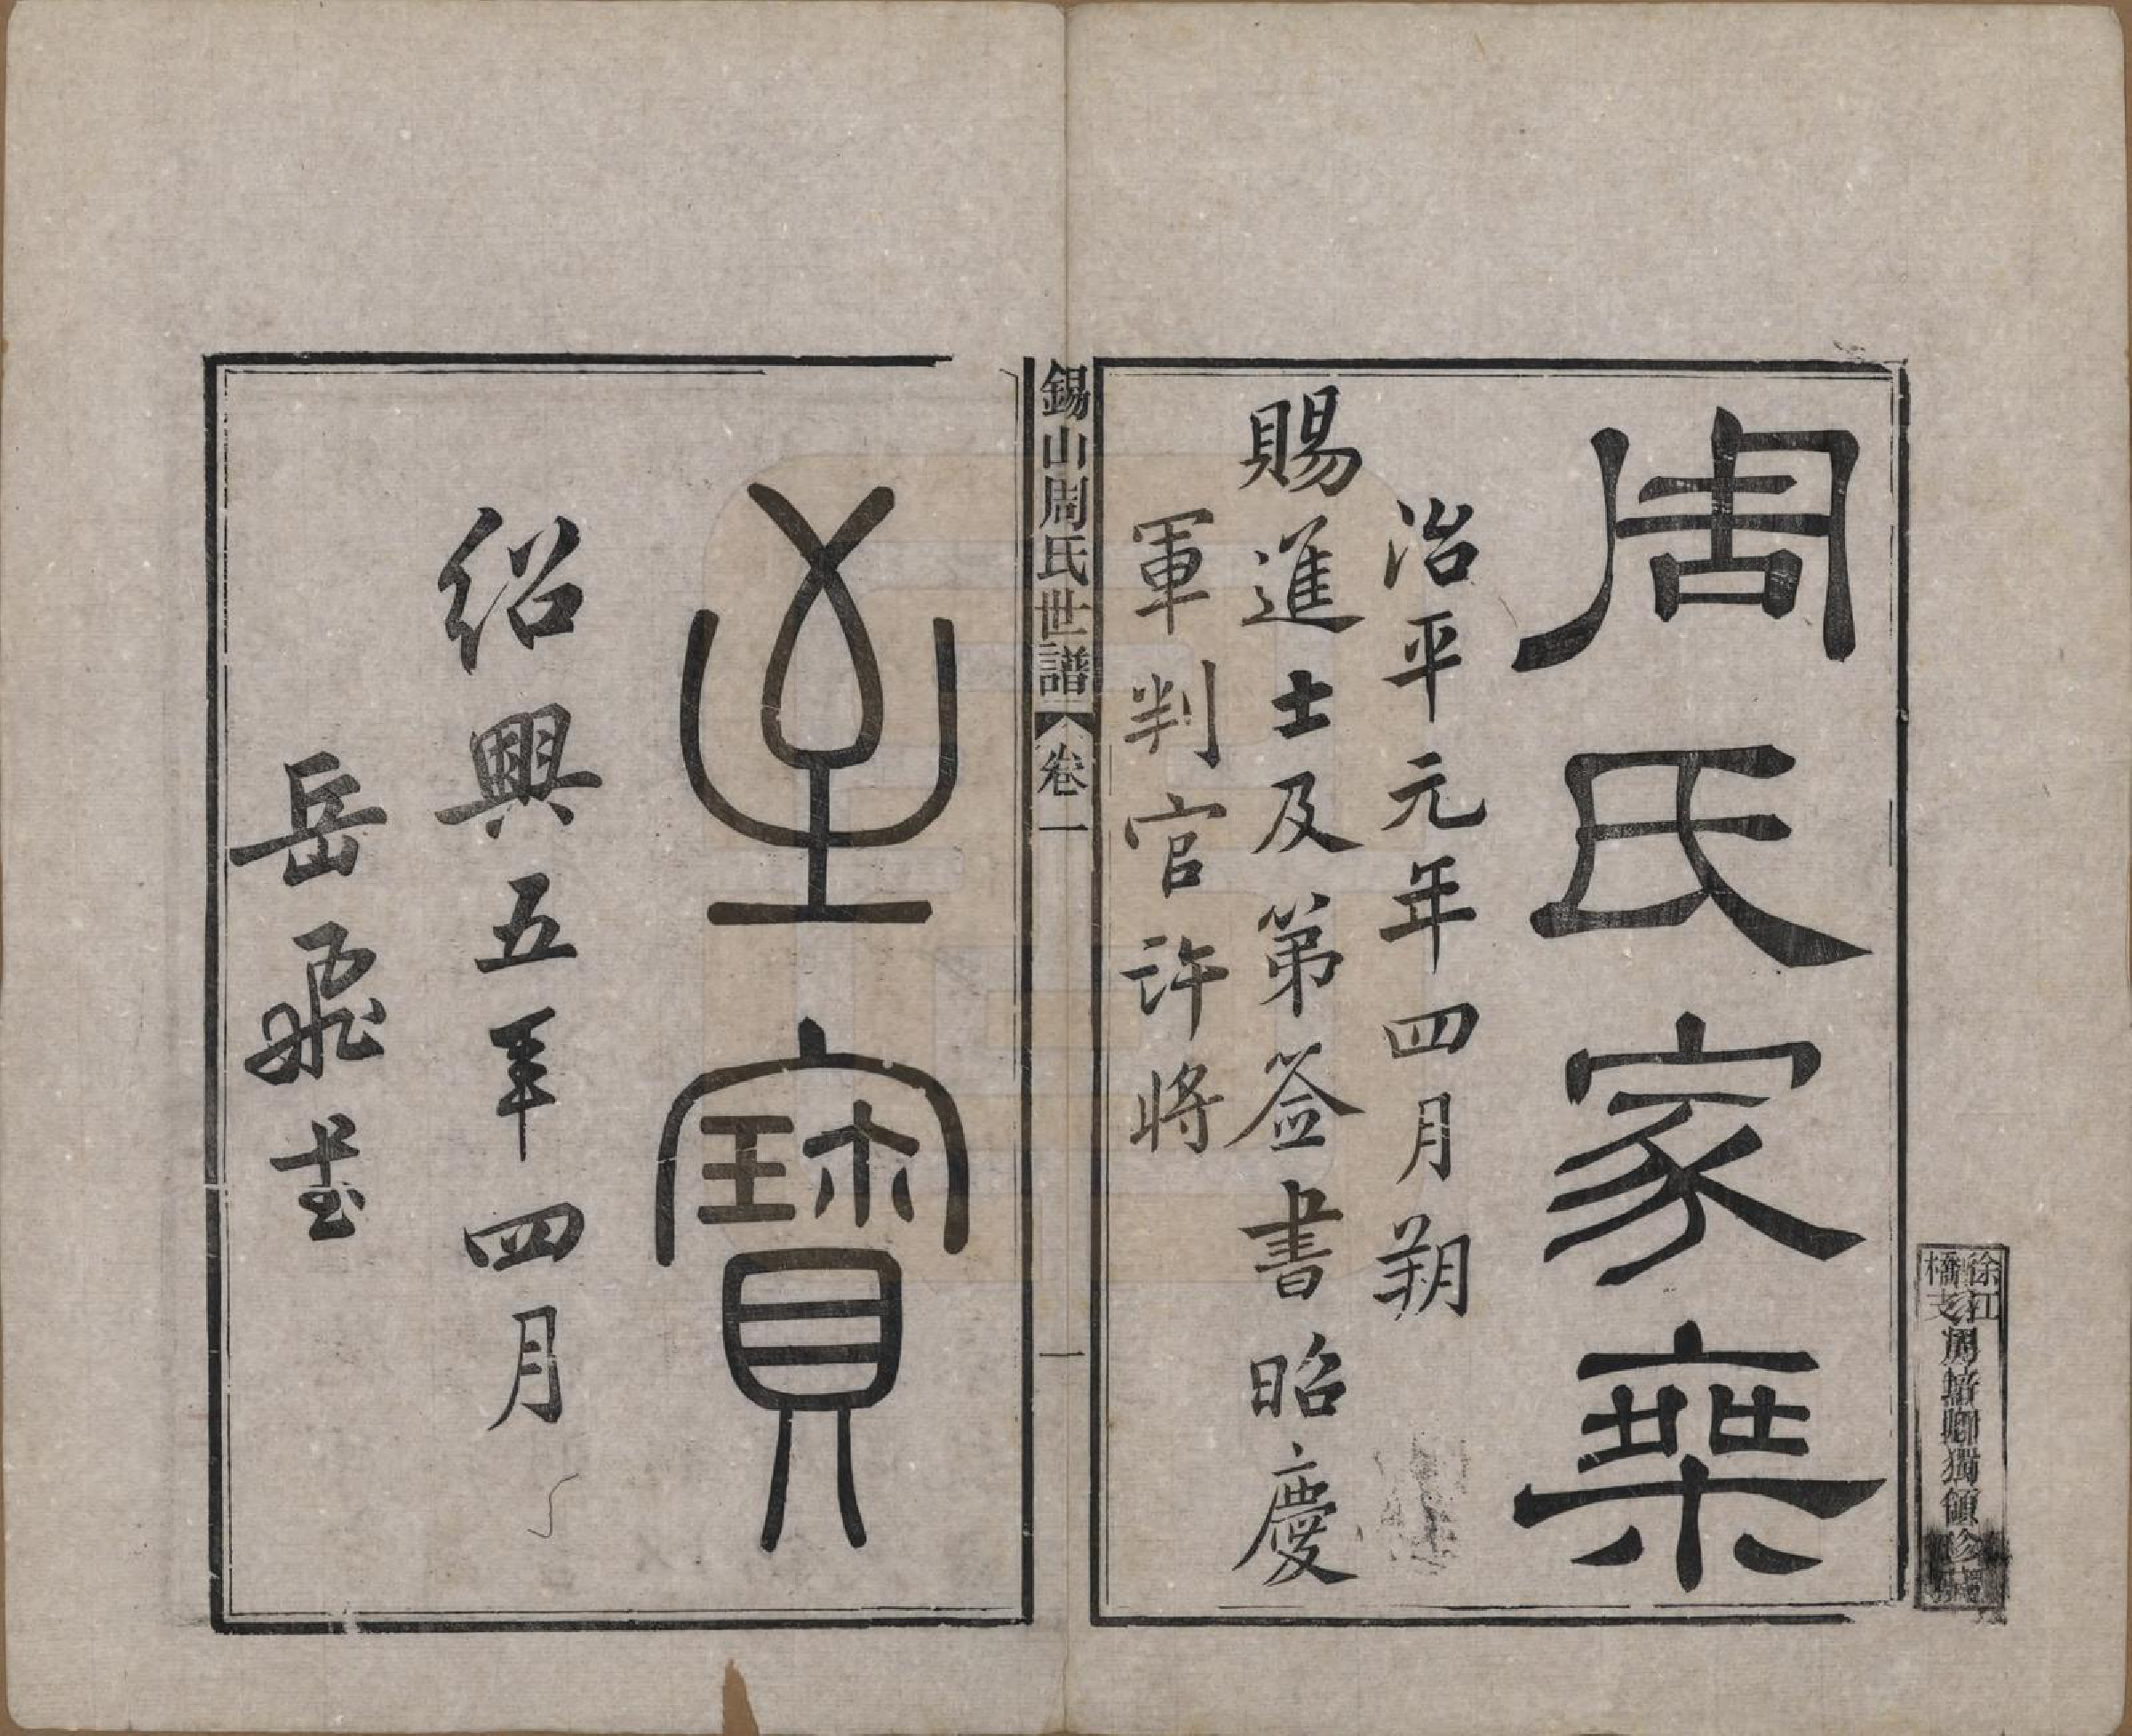 徐江橋支周培卿獨領珍藏
周氏家乘
治平元年四月朔
賜進士及第簽書昭慶
軍判官許將
錫山周氏世譜 卷一 一
至寶
紹興五年四月
岳飛書